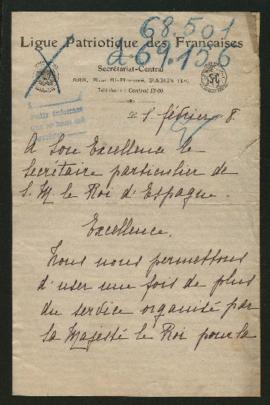 68.501
à 69.156
Ligue Patriotique des Françaises
Secrétariat-Central
Téléphone : Central
le 1 février 8.
A Son Excellence le
Secrétaire particulier de
S. M. le Roi d'Espagne.
Excellence.
Nous nous permettons
d'user une fois de plus
du service organisé par
sa Majesté le Roi pour la